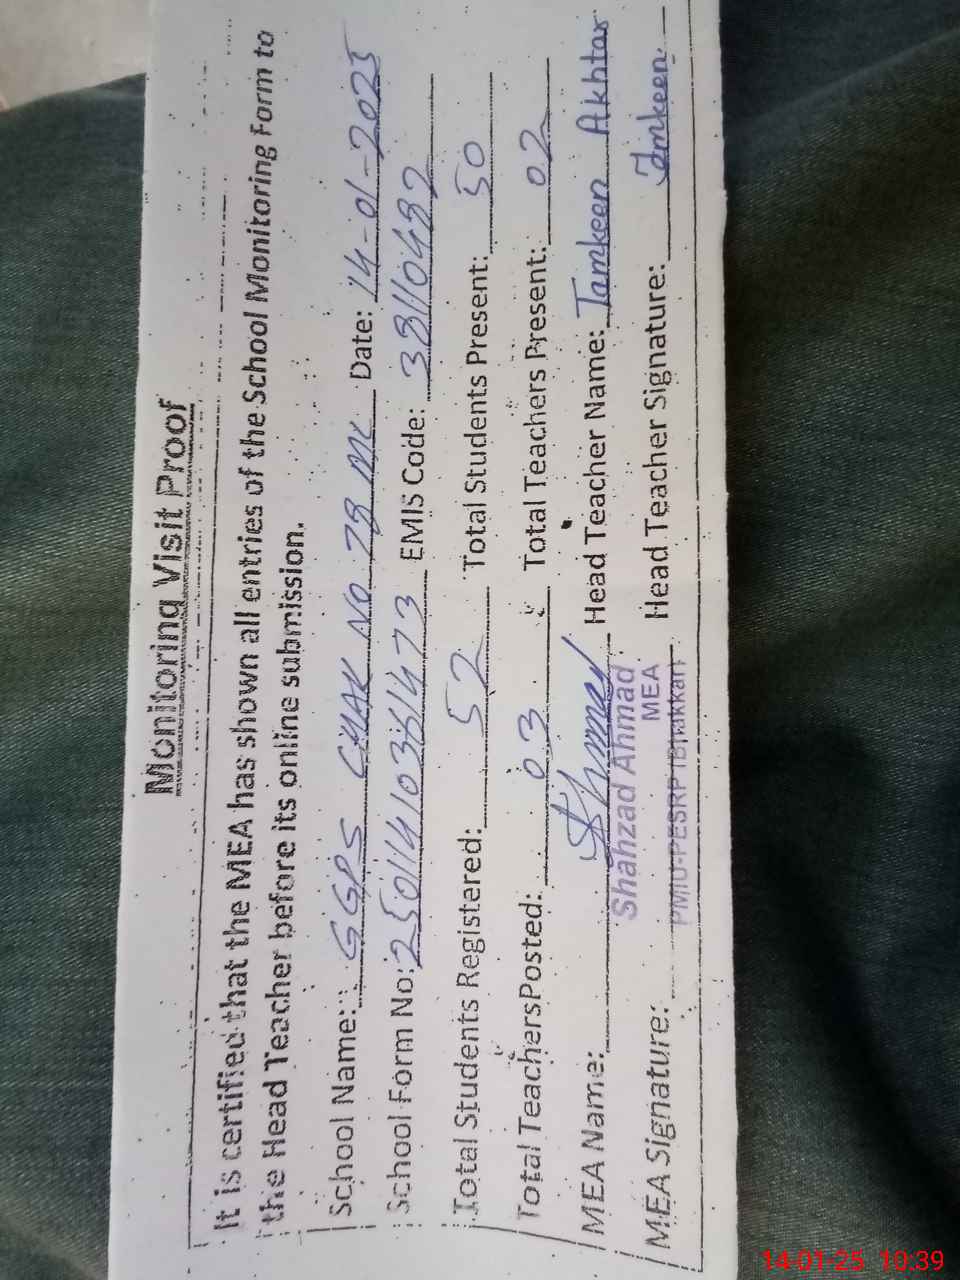 Monitoring Visit Proof
It is certified that the MEA has shown all entries of the School Monitoring Form to
the Head Teacher before its online submission.
School Name: GGPS CHAK NO 78 ML Date: 14-01-2025
School Form No: EMIS Code:
Total Students Registered: 52 Total Students Present: 50
Total Teachers Posted: 03 Total Teachers Present: 02
MEA Name: Head Teacher Name: Tamkeen Akhtar
Shahzad Ahmad
MEA
MEA Signature: PMIU-PESRP (Bhakkar) Head Teacher Signature: Tamkeen
14-01-25 10:39